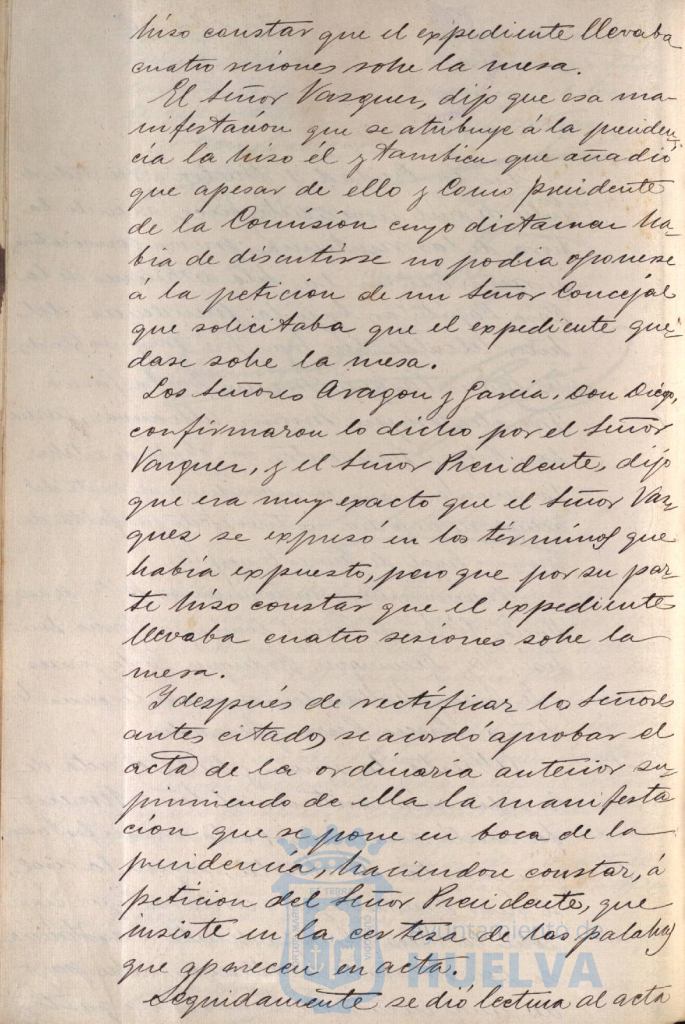 hiso constar que el expediente llevaba
cuatro sesiones sobre la mesa.
El Señor Vazquez, dijo que esa ma-
nifestación que se atribuye á la presiden-
cia la hiso él y tambien que añadió
que apesar de ello y como presidente
de la Comisión cuyo dictamen ha-
bia de discutirse no podia oponerse
á la petición de un Señor Concejal
que solicitaba que el expediente que-
dase sobre la mesa.
Los Señores Aragon y Garcia, Don Diego,
confirmaron lo dicho por el Señor
Vazquez, y el Señor Presidente, dijo
que era muy exacto que el Señor Vaz-
quez se expresó en los términos que
había expuesto, pero que por su par-
te hiso constar que el expediente
llevaba cuatro sesiones sobre la
mesa.
Y después de rectificar los Señores
antes citados se acordó aprobar el
acta de la ordinaria anterior su-
primiendo de ella la manifesta
ción que se pone en boca de la
presidencia, haciendose constar, á
petición del Señor Presidente, que
insiste en la certesa de las palabras
que aparecen en acta.
Seguidamente se dió lectura al acta
Ayuntamiento de
HUELVA